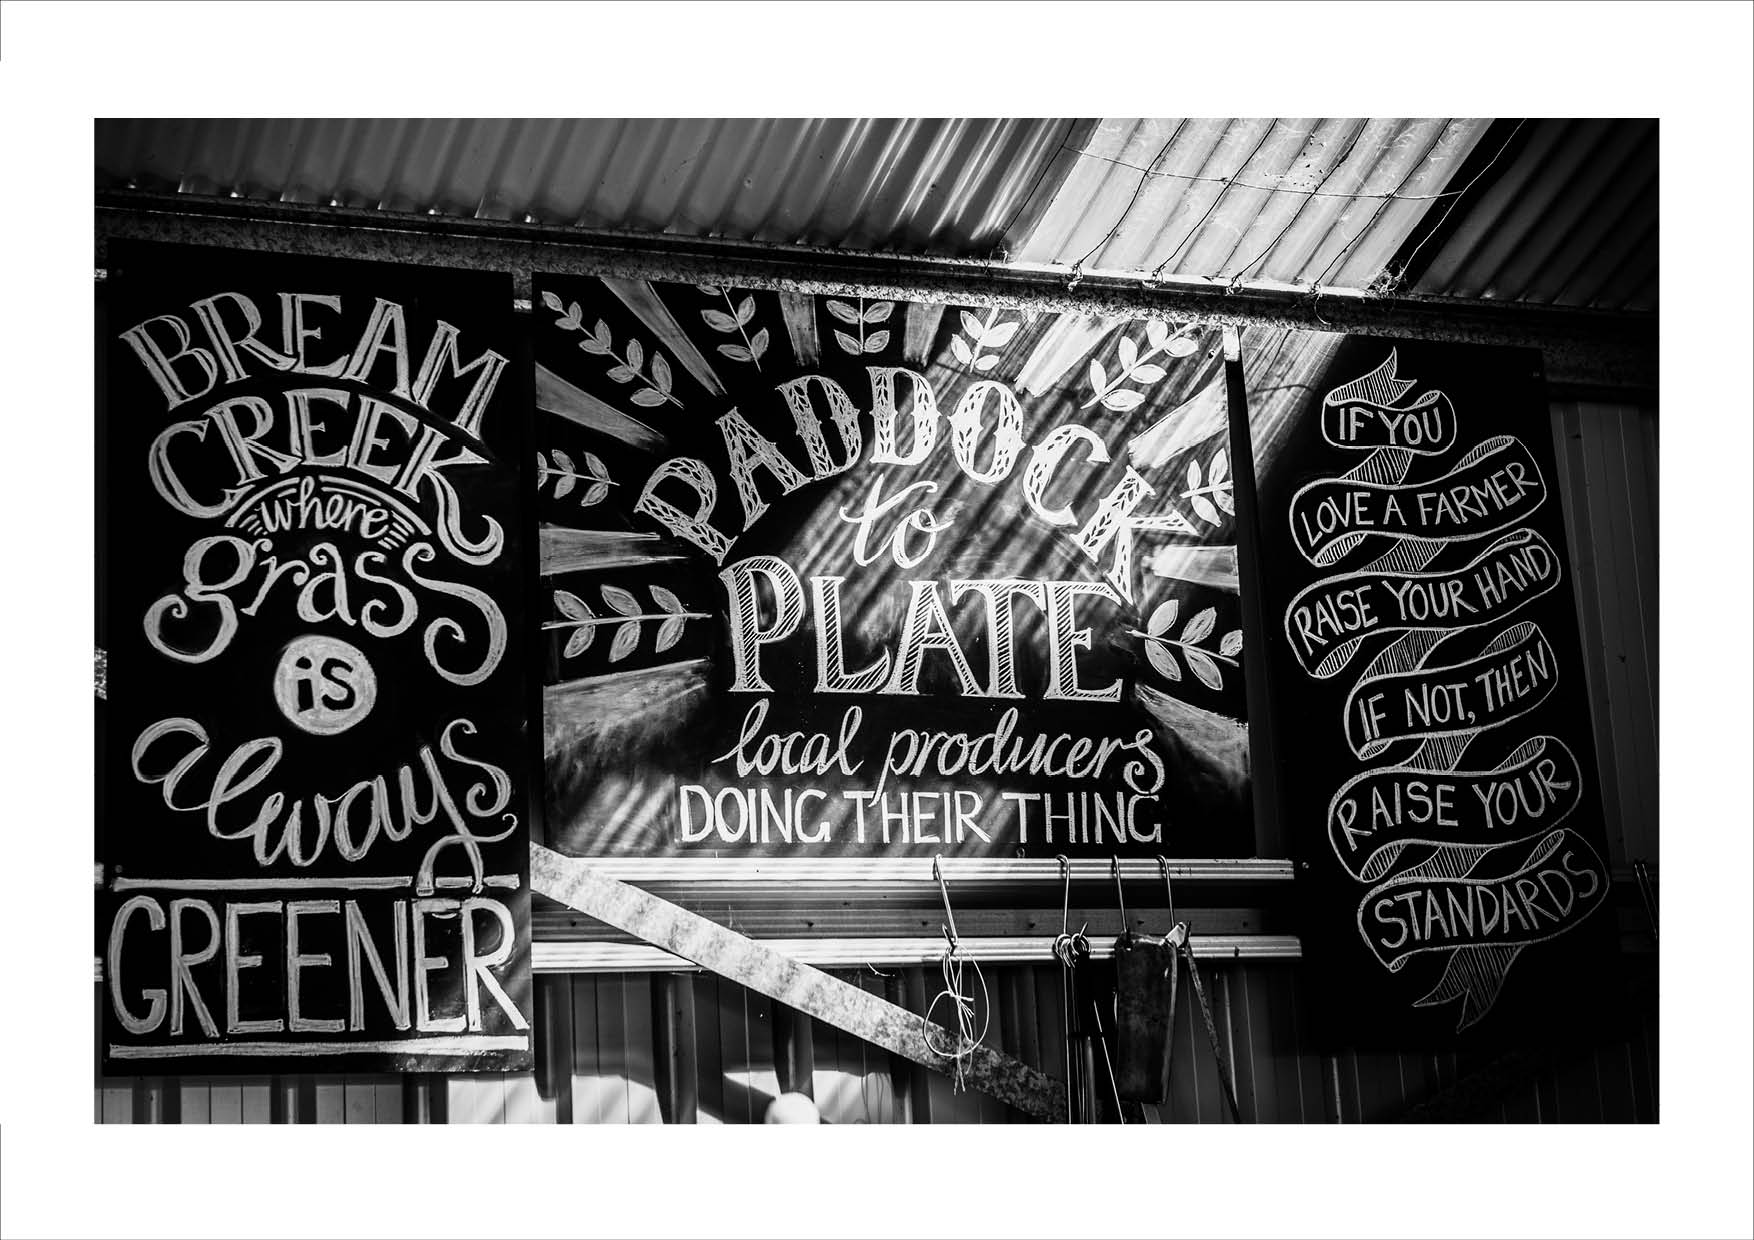 BREAM
CREEK
where
grass
is
always
GREENER
PADDOCK
to
PLATE
local producers
DOING THEIR THING
IF YOU
LOVE A FARMER
RAISE YOUR HAND
IF NOT, THEN
RAISE YOUR
STANDARDS